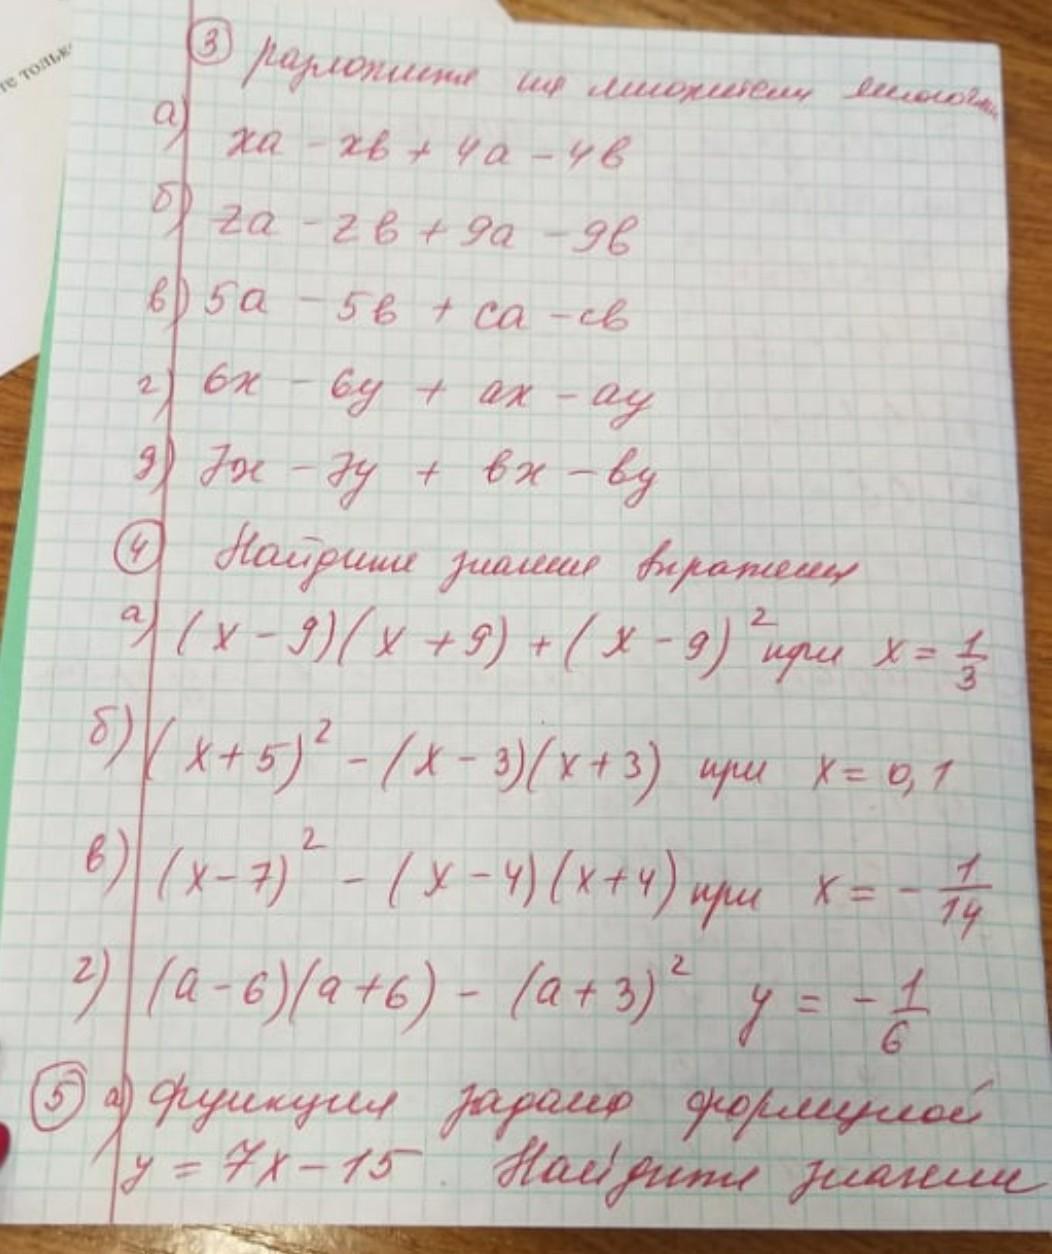 те только
③ разложите на множители многочлен
а) xa - xв + 4a - 4в
б) za - zв + 9a - 9в
в) 5a - 5в + ca - cв
г) 6x - 6y + ax - ay
д) 7x - 7y + вx - вy
④ Найдите значение выражения
а) (x - 9)(x + 9) + (x - 9)² при x = 1/3
б) (x + 5)² - (x - 3)(x + 3) при x = 0,1
в) (x - 7)² - (x - 4)(x + 4) при x = - 1/14
г) (a - 6)(a + 6) - (a + 3)² y = - 1/6
⑤ а) функция задана формулой
y = 7x - 15. Найдите значение